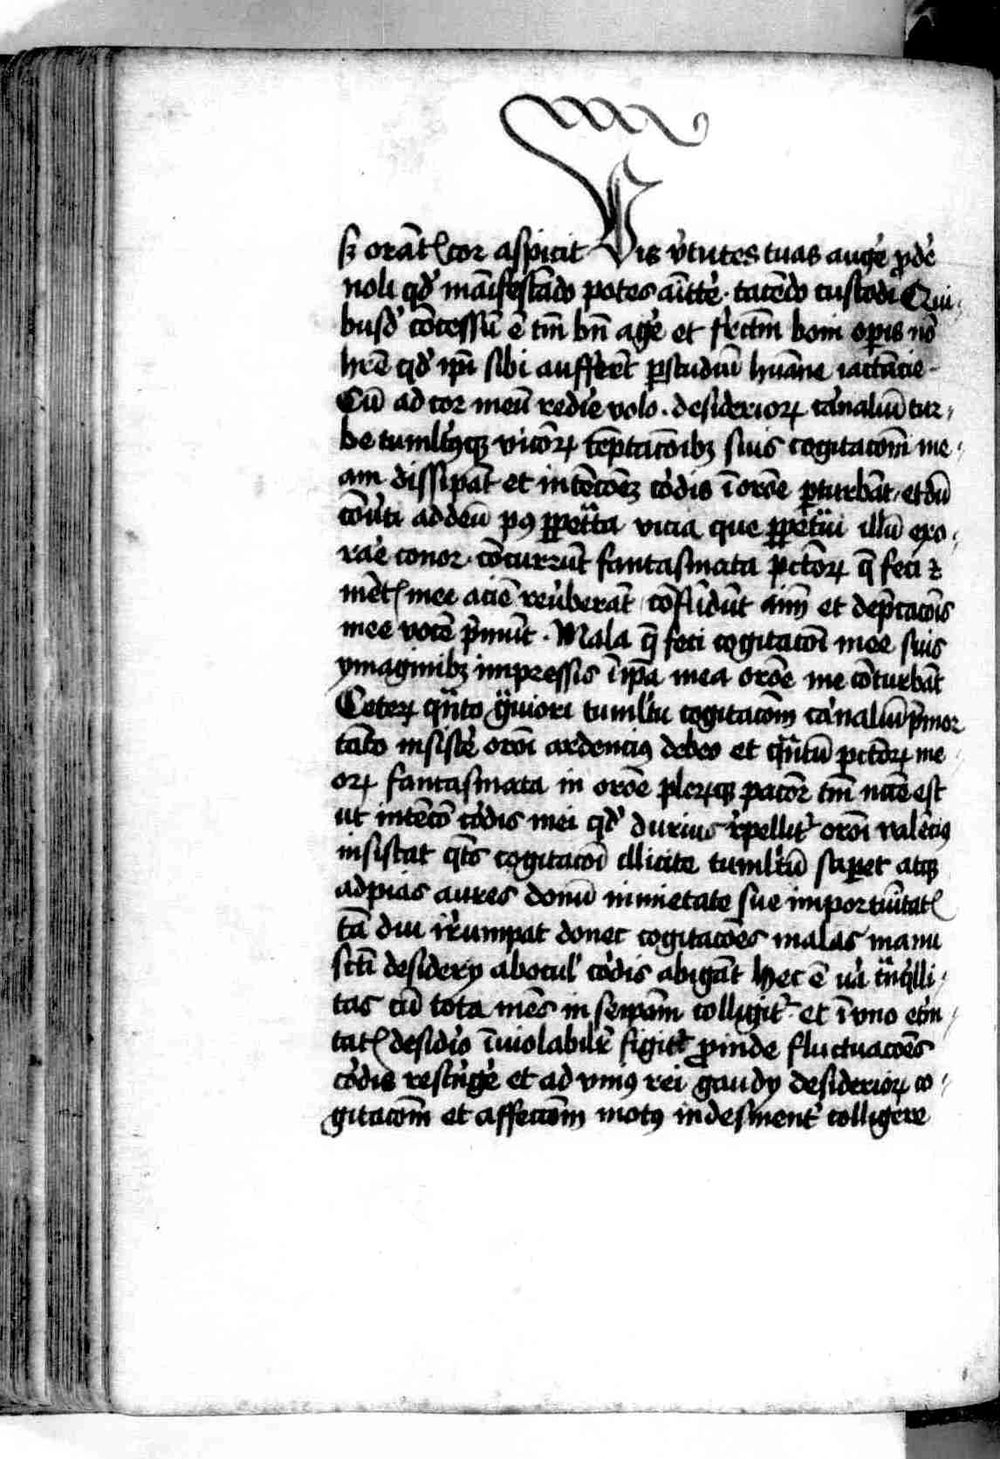 sꝫ orāt᷒ cor aspicit Vis v̓tutes tuas auge̓ ꝓde̓
noli qd̓ māifestādo potes am̄itte̓ · tacēdo custodi Qui⸗
busd̓ cōcessū ē tm̄ bn̄ age̓ et fr̄ctm̄ boni op̄is nō
hr̄e qd̓ ip̄i sibi aufferr̄t ꝑ studiū hūane iactācie ·
Cū ad cor meū redir̄e volo · desiderioꝝ ca̓naliū tur⸗
be tumlt̓ꝯqꝫ vicioꝝ tēptacōibꝫ suis cogitacōm̄ me⸗
am dissipāt et intēcōeꝫ co̓dis ī orōe ꝑturbāt · et dū
cōu̓ti ad deū pꝯ ꝑpet̓ta vicia que ꝑpet̓ui illū exo⸗
rar̄e conor · cōcurrūt fantasmata p̄ctoꝝ q̄ feci ⁊
mēt᷒ mee aciē reu̓berāt cōfūdūt aīm et dep̄cacōis
mee vocē p̄mūt · Mala q̄ feci cogitacōi mee suis
ymaginibꝫ impressis ī ip̄a mea orōe me cōturbāt
Ceteꝝ qͣnto gͣuiori tumltu cogitacōm ca̓naliū p̄mor
tāto insiste̓ orōi ardenciꝯ debeo et qͣntū p̄ctoꝝ me⸗
oꝝ fantasmata in orōe pleꝝqꝫ pacior tm̄ nccē est
ut intēcō co̓dis mei qd̓ durius r̓pellit᷑ orōi valēciꝯ
insistat qͣts cogitacōi illicite tumltū suꝑet atqꝫ
ad pias aures domī nimietate sue importūitat᷒
tā diu ir̓umpat donec cogitacōes malas manu
sctī desiderij ab ocul̓ co̓dis abigāt hec ē u̓a tͣnqͥlli⸗
tas cū tota mēs in seip̄am colligit᷑ · et ī vno et̓ni⸗
tat᷒ desid̓io īuiolabilit̓ figit᷑ ꝓinde fluctuacōes
co̓dis restͥnge̓ et ad vniꝯ rei gaudij desiderioꝝ co⸗
gitacōm̄ et affectōm̄ motꝯ indesinent̓ colligere